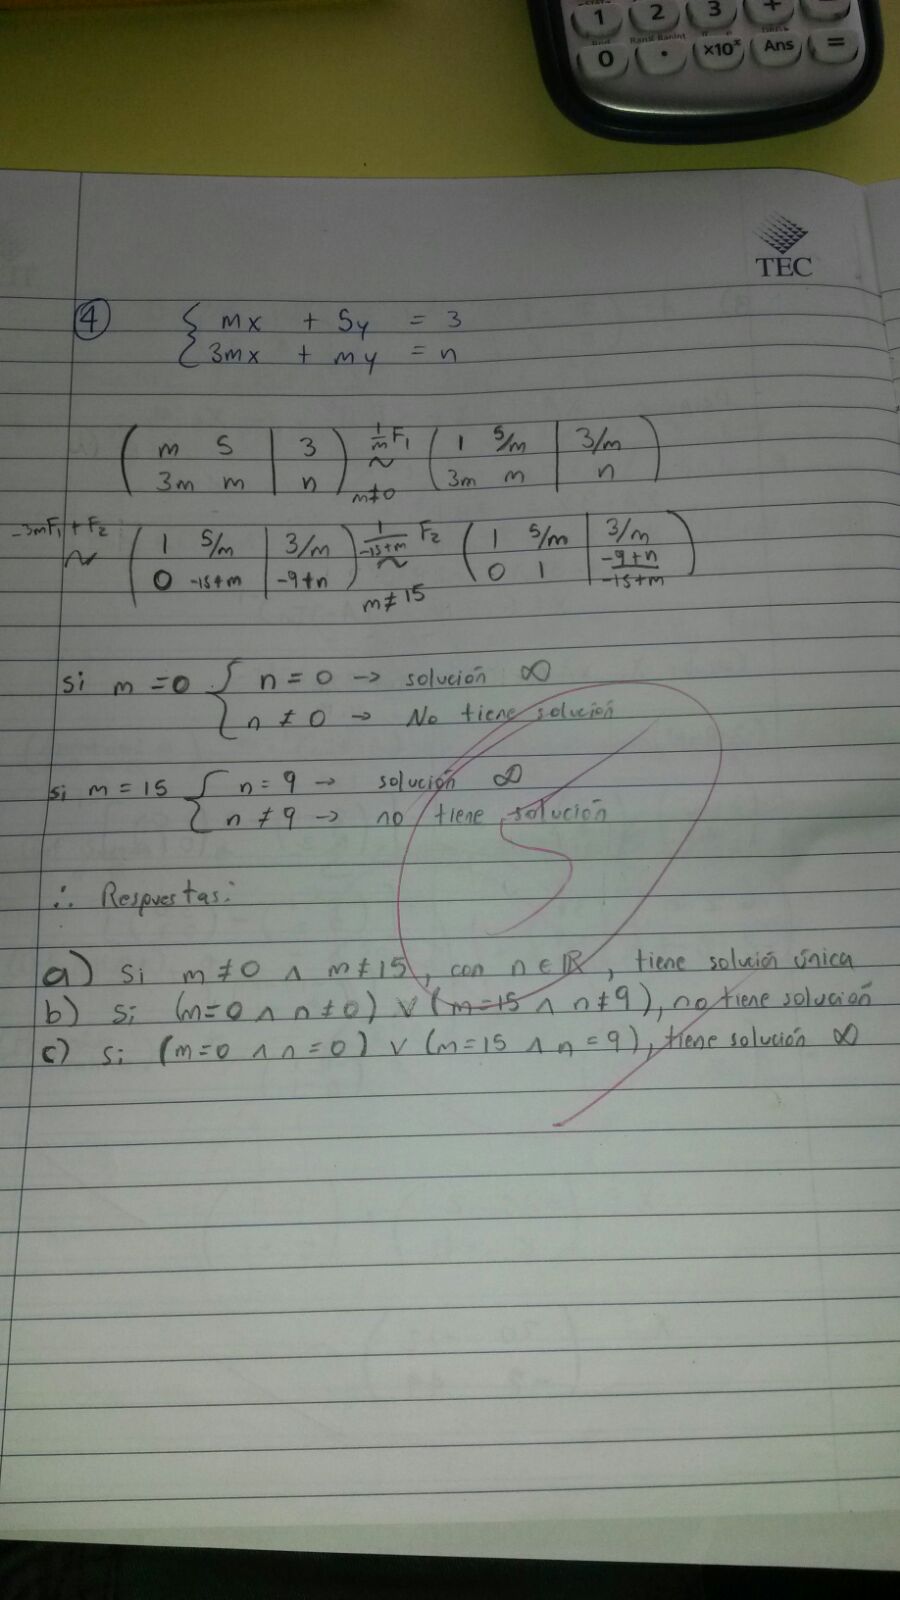 1 2 3 +
0 . ×10ˣ Ans =
TEC
4 { mx + 5y = 3
{ 3mx + my = n
( m 5 | 3 ) 1/m F₁ ~ m≠0 ( 1 5/m | 3/m )
( 3m m | n ) ( 3m m | n )
-3mF₁ + F₂ ~ ( 1 5/m | 3/m ) 1/(-15+m) F₂ ~ m≠15 ( 1 5/m | 3/m )
( 0 -15+m | -9+n ) ( 0 1 | (-9+n)/(-15+m) )
si m = 0 { n = 0 → solución ∞
{ n ≠ 0 → No tiene solución
si m = 15 { n = 9 → solución ∞
{ n ≠ 9 → no tiene solución
5
∴ Respuestas:
a) Si m ≠ 0 ∧ m ≠ 15, con n ∈ ℝ, tiene solución única
b) Si (m = 0 ∧ n ≠ 0) ∨ (m = 15 ∧ n ≠ 9), no tiene solución
c) Si (m = 0 ∧ n = 0) ∨ (m = 15 ∧ n = 9), tiene solución ∞